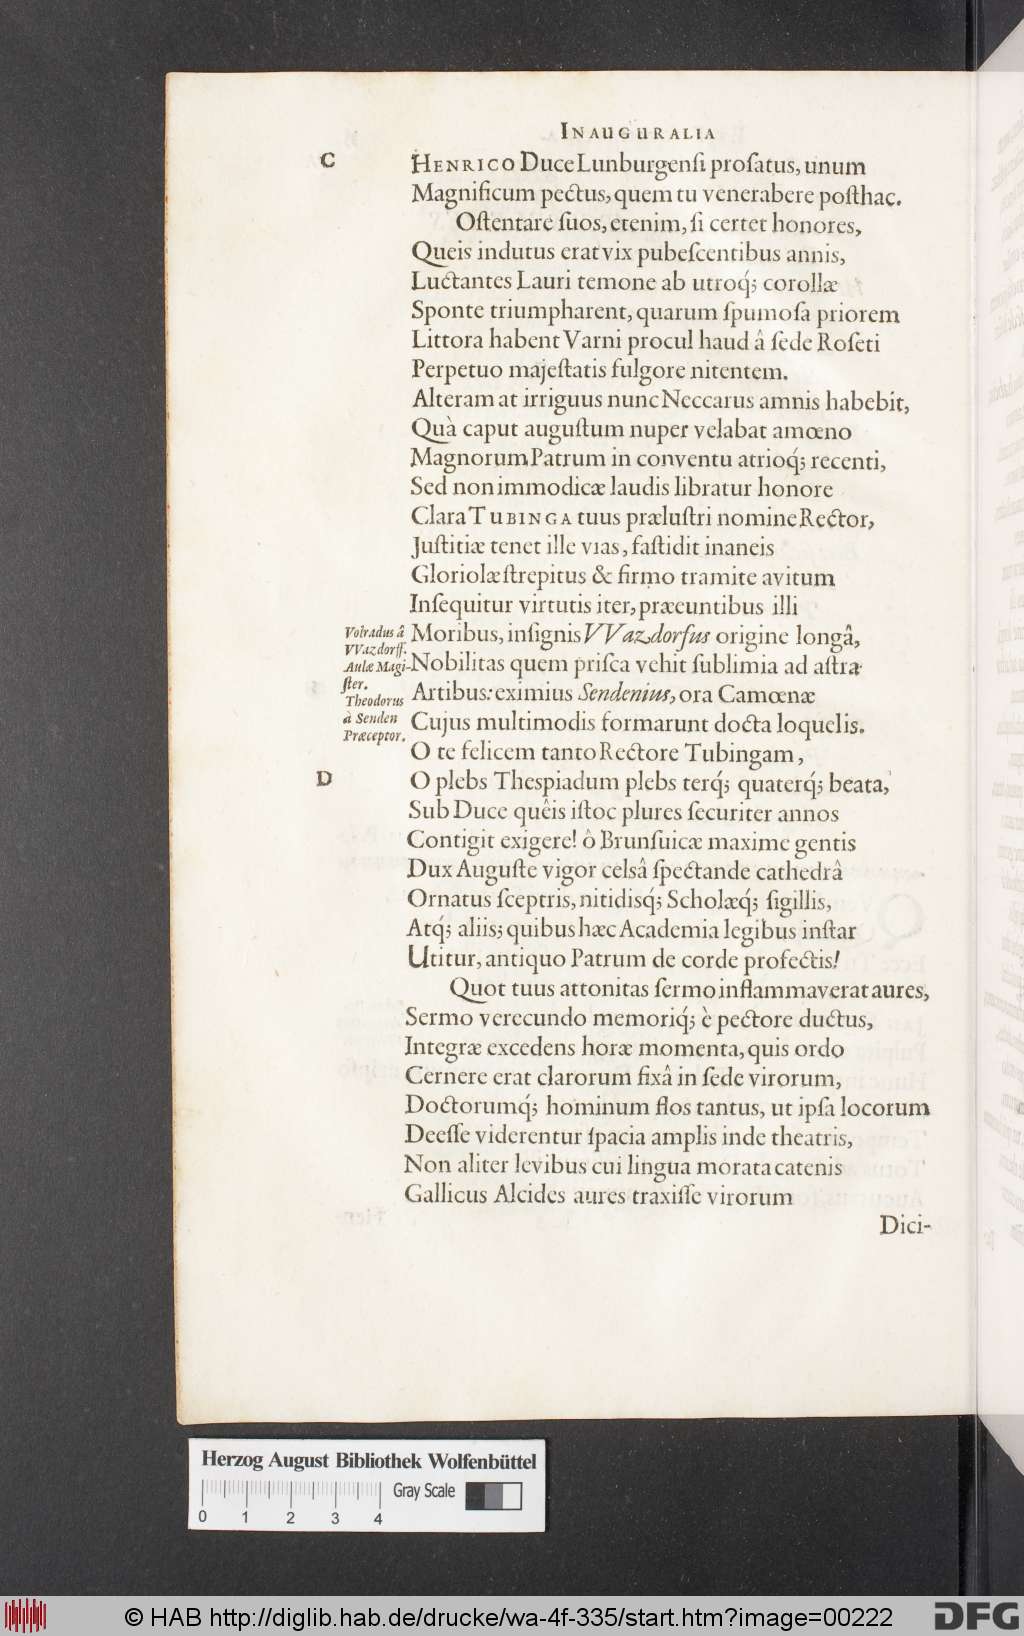 INAUGURALIA
C
HENRICO Duce Lunburgensi prosatus, unum
Magnificum pectus, quem tu venerabere posthac.
Ostentare suos, etenim, si certet honores,
Queis indutus erat vix pubescentibus annis,
Luctantes Lauri temone ab utroq́; corollæ
Sponte triumpharent, quarum spumosa priorem
Littora habent Varni procul haud â sede Roseti
Perpetuo majestatis fulgore nitentem.
Alteram at irriguus nunc Neccarus amnis habebit,
Quà caput augustum nuper velabat amœno
Magnorum Patrum in conventu atrioq́; recenti,
Sed non immodicæ laudis libratur honore
Clara TUBINGA tuus prælustri nomine Rector,
Justitiæ tenet ille vias, fastidit inaneis
Gloriolæ strepitus & firmo tramite avitum
Insequitur virtutis iter, præeuntibus illi
Moribus, insignis VVazdorfus origine longâ,
Nobilitas quem prisca vehit sublimia ad astra
Artibus: eximius Sendenius, ora Camœnæ
Cujus multimodis formarunt docta loquelis.
Volradus â
VVazdorff.
Aulæ Magi-
ster.
Theodorus
à Senden
Præceptor.
O te felicem tanto Rectore Tubingam,
D
O plebs Thespiadum plebs terq́; quaterq́; beata,
Sub Duce quêis istoc plures securiter annos
Contigit exigere! ô Brunsuicæ maxime gentis
Dux Auguste vigor celsâ spectande cathedrâ
Ornatus sceptris, nitidisq́; Scholæq́; sigillis,
Atq́; aliis; quibus hæc Academia legibus instar
Utitur, antiquo Patrum de corde profectis!
Quot tuus attonitas sermo inflammaverat aures,
Sermo verecundo memoriq́; è pectore ductus,
Integræ excedens horæ momenta, quis ordo
Cernere erat clarorum fixâ in sede virorum,
Doctorumq́; hominum flos tantus, ut ipsa locorum
Deesse viderentur spacia amplis inde theatris,
Non aliter levibus cui lingua morata catenis
Gallicus Alcides aures traxisse virorum
Dici-
Herzog August Bibliothek Wolfenbüttel
Gray Scale
0 1 2 3 4
© HAB http://diglib.hab.de/drucke/wa-4f-335/start.htm?image=00222
DFG